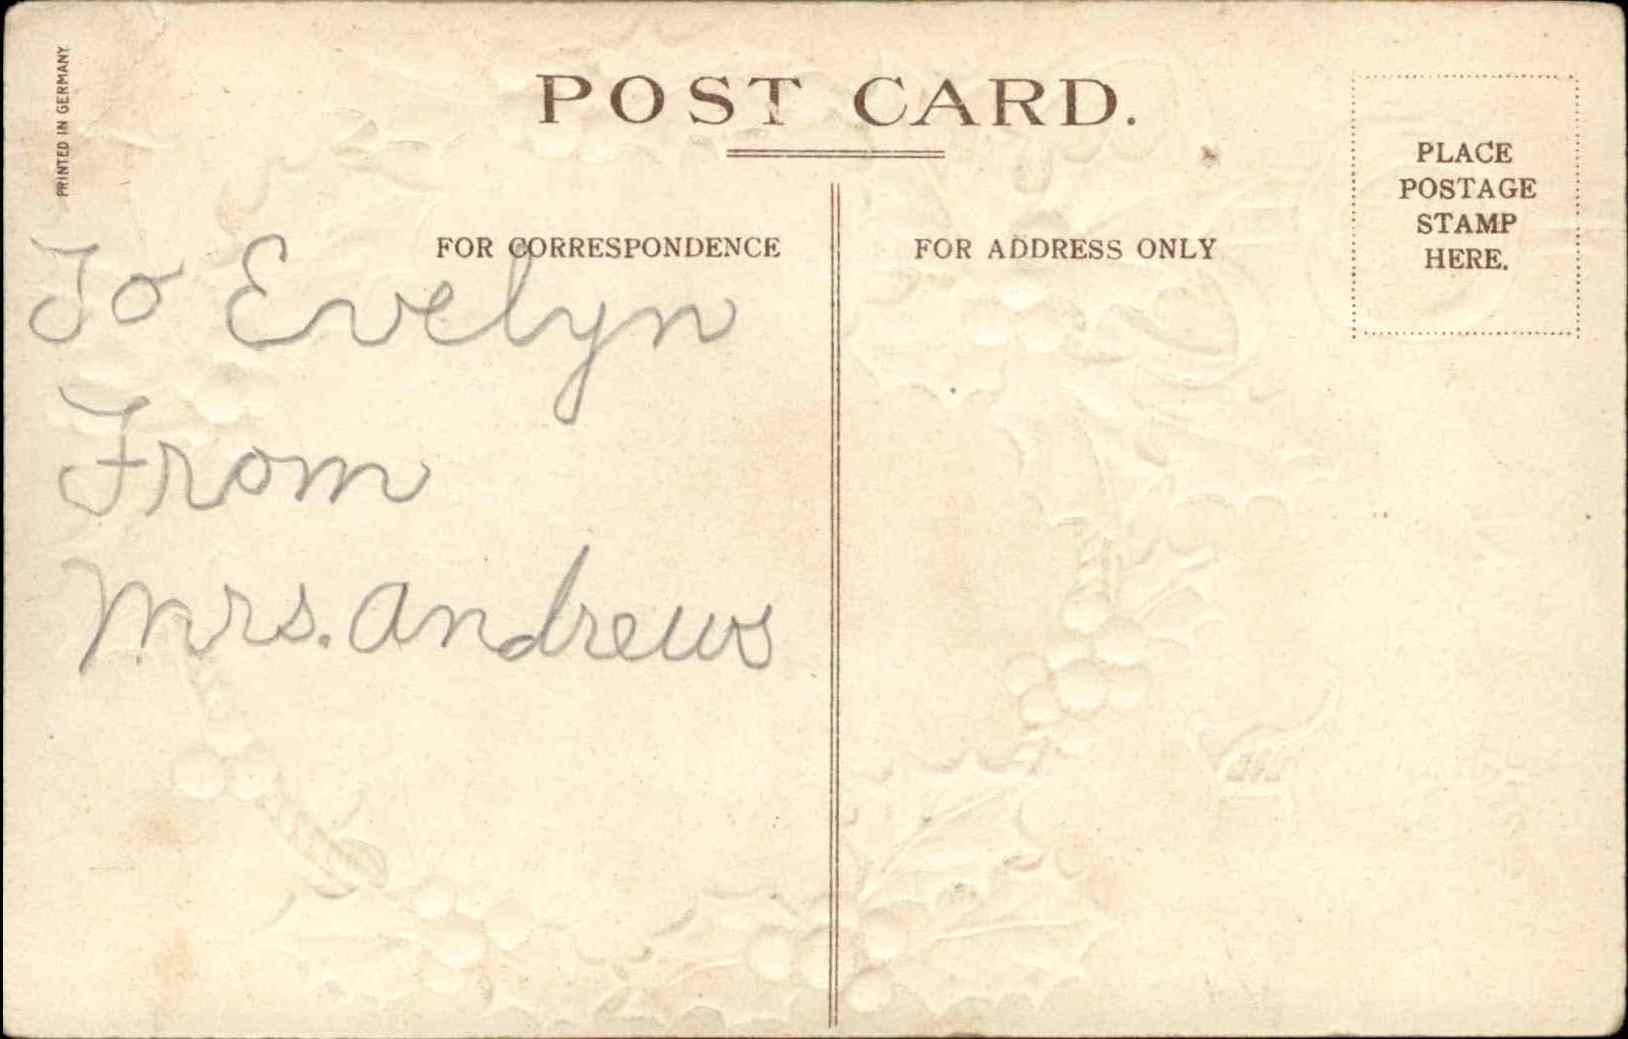 PRINTED IN GERMANY
POST CARD.
PLACE
POSTAGE
STAMP
HERE.
FOR CORRESPONDENCE
FOR ADDRESS ONLY
To Evelyn
From
Mrs. Andrews